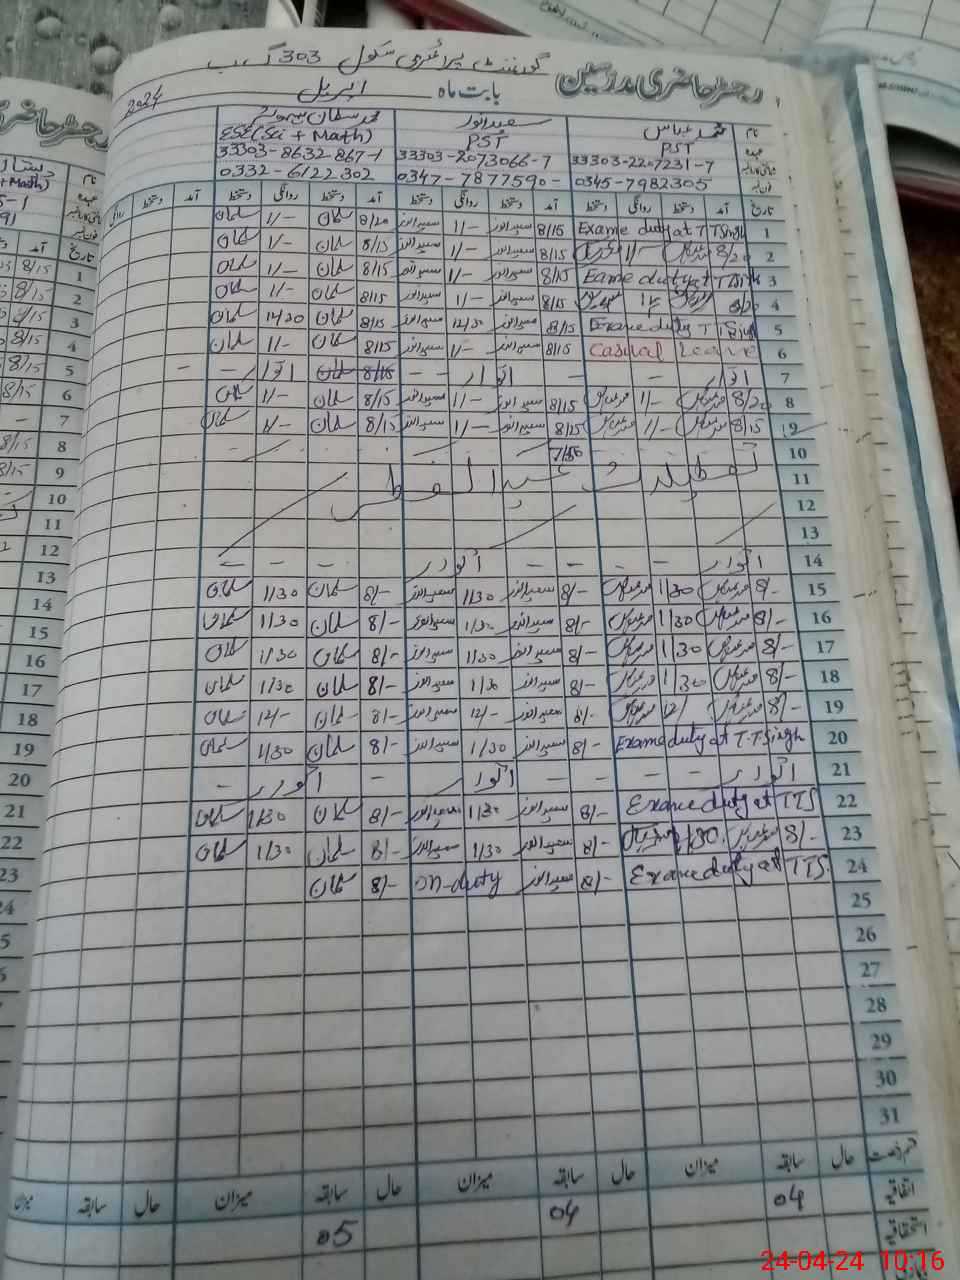 گورنمنٹ پرائمری سکول 303 گ ب
رجسٹر حاضری مدرسین
بابت ماہ اپریل 2024
نام محمد عباس سعید انور محمد سلمان
عہدہ PST PST ESE (Sci + Math)
33303-2207231-7 33303-2073066-7 33303-8632867-1
0345-7982305 0347-7877590 0332-6122302
تاریخ آمد دستخط روانگی دستخط آمد دستخط روانگی دستخط آمد دستخط روانگی دستخط آمد دستخط روانگی
1 Exame duty at T T Singh 8/15 سعید انور 1/- سعید انور 8/20 سلمان 1/- سلمان
2 8/20 محمد عباس 1/- 8/15 سعید انور 1/- سعید انور 8/15 سلمان 1/- سلمان
3 Eame duty at T T Singh 8/15 سعید انور 1/- سعید انور 8/15 سلمان 1/- سلمان
4 8/20 8/15 سعید انور 1/- سعید انور 8/15 سلمان 1/- سلمان
5 Exame duty T T Singh 8/15 سعید انور 12/30 سعید انور 8/15 سلمان 12/30 سلمان
6 Casual Leave 8/15 سعید انور 1/- سعید انور 8/15 سلمان 1/- سلمان
7 اتوار - - اتوار - - 8/15 سلمان اتوار - -
8 8/20 محمد عباس 1/- محمد عباس 8/15 سعید انور 1/- سعید انور 8/15 سلمان 1/- سلمان
9 8/15 محمد عباس 1/- محمد عباس 8/15 سعید انور 1/- سعید انور 8/15 سلمان 1/- سلمان
10
11 تعطیلات عید الفطر
12
13
14 اتوار - - - - اتوار - - - -
15 8/- محمد عباس 1/30 محمد عباس 8/- سعید انور 1/30 سعید انور 8/- سلمان 1/30 سلمان
16 8/- محمد عباس 1/30 محمد عباس 8/- سعید انور 1/30 سعید انور 8/- سلمان 1/30 سلمان
17 8/- محمد عباس 1/30 محمد عباس 8/- سعید انور 1/30 سعید انور 8/- سلمان 1/30 سلمان
18 8/- محمد عباس 1/30 محمد عباس 8/- سعید انور 1/30 سعید انور 8/- سلمان 1/30 سلمان
19 8/- محمد عباس 12/ محمد عباس 8/- سعید انور 12/- سعید انور 8/- سلمان 12/- سلمان
20 Exame duty at T.T Singh 8/- سعید انور 1/30 سعید انور 8/- سلمان 1/30 سلمان
21 اتوار - - - - اتوار - اتوار -
22 Exame duty at TTS 8/- سعید انور 1/30 سعید انور 8/- سلمان 1/30 سلمان
23 8/- محمد عباس 1/30 8/- سعید انور 1/30 سعید انور 8/- سلمان 1/30 سلمان
24 Exame duty at TTS. 8/- سعید انور on-duty 8/- سلمان
25
26
27
28
29
30
31
قسم رخصت حال سابقہ میزان حال سابقہ میزان حال سابقہ میزان حال سابقہ میزان
اتفاقیہ 04 04 05
استحقاقیہ
24-04-24 10:16